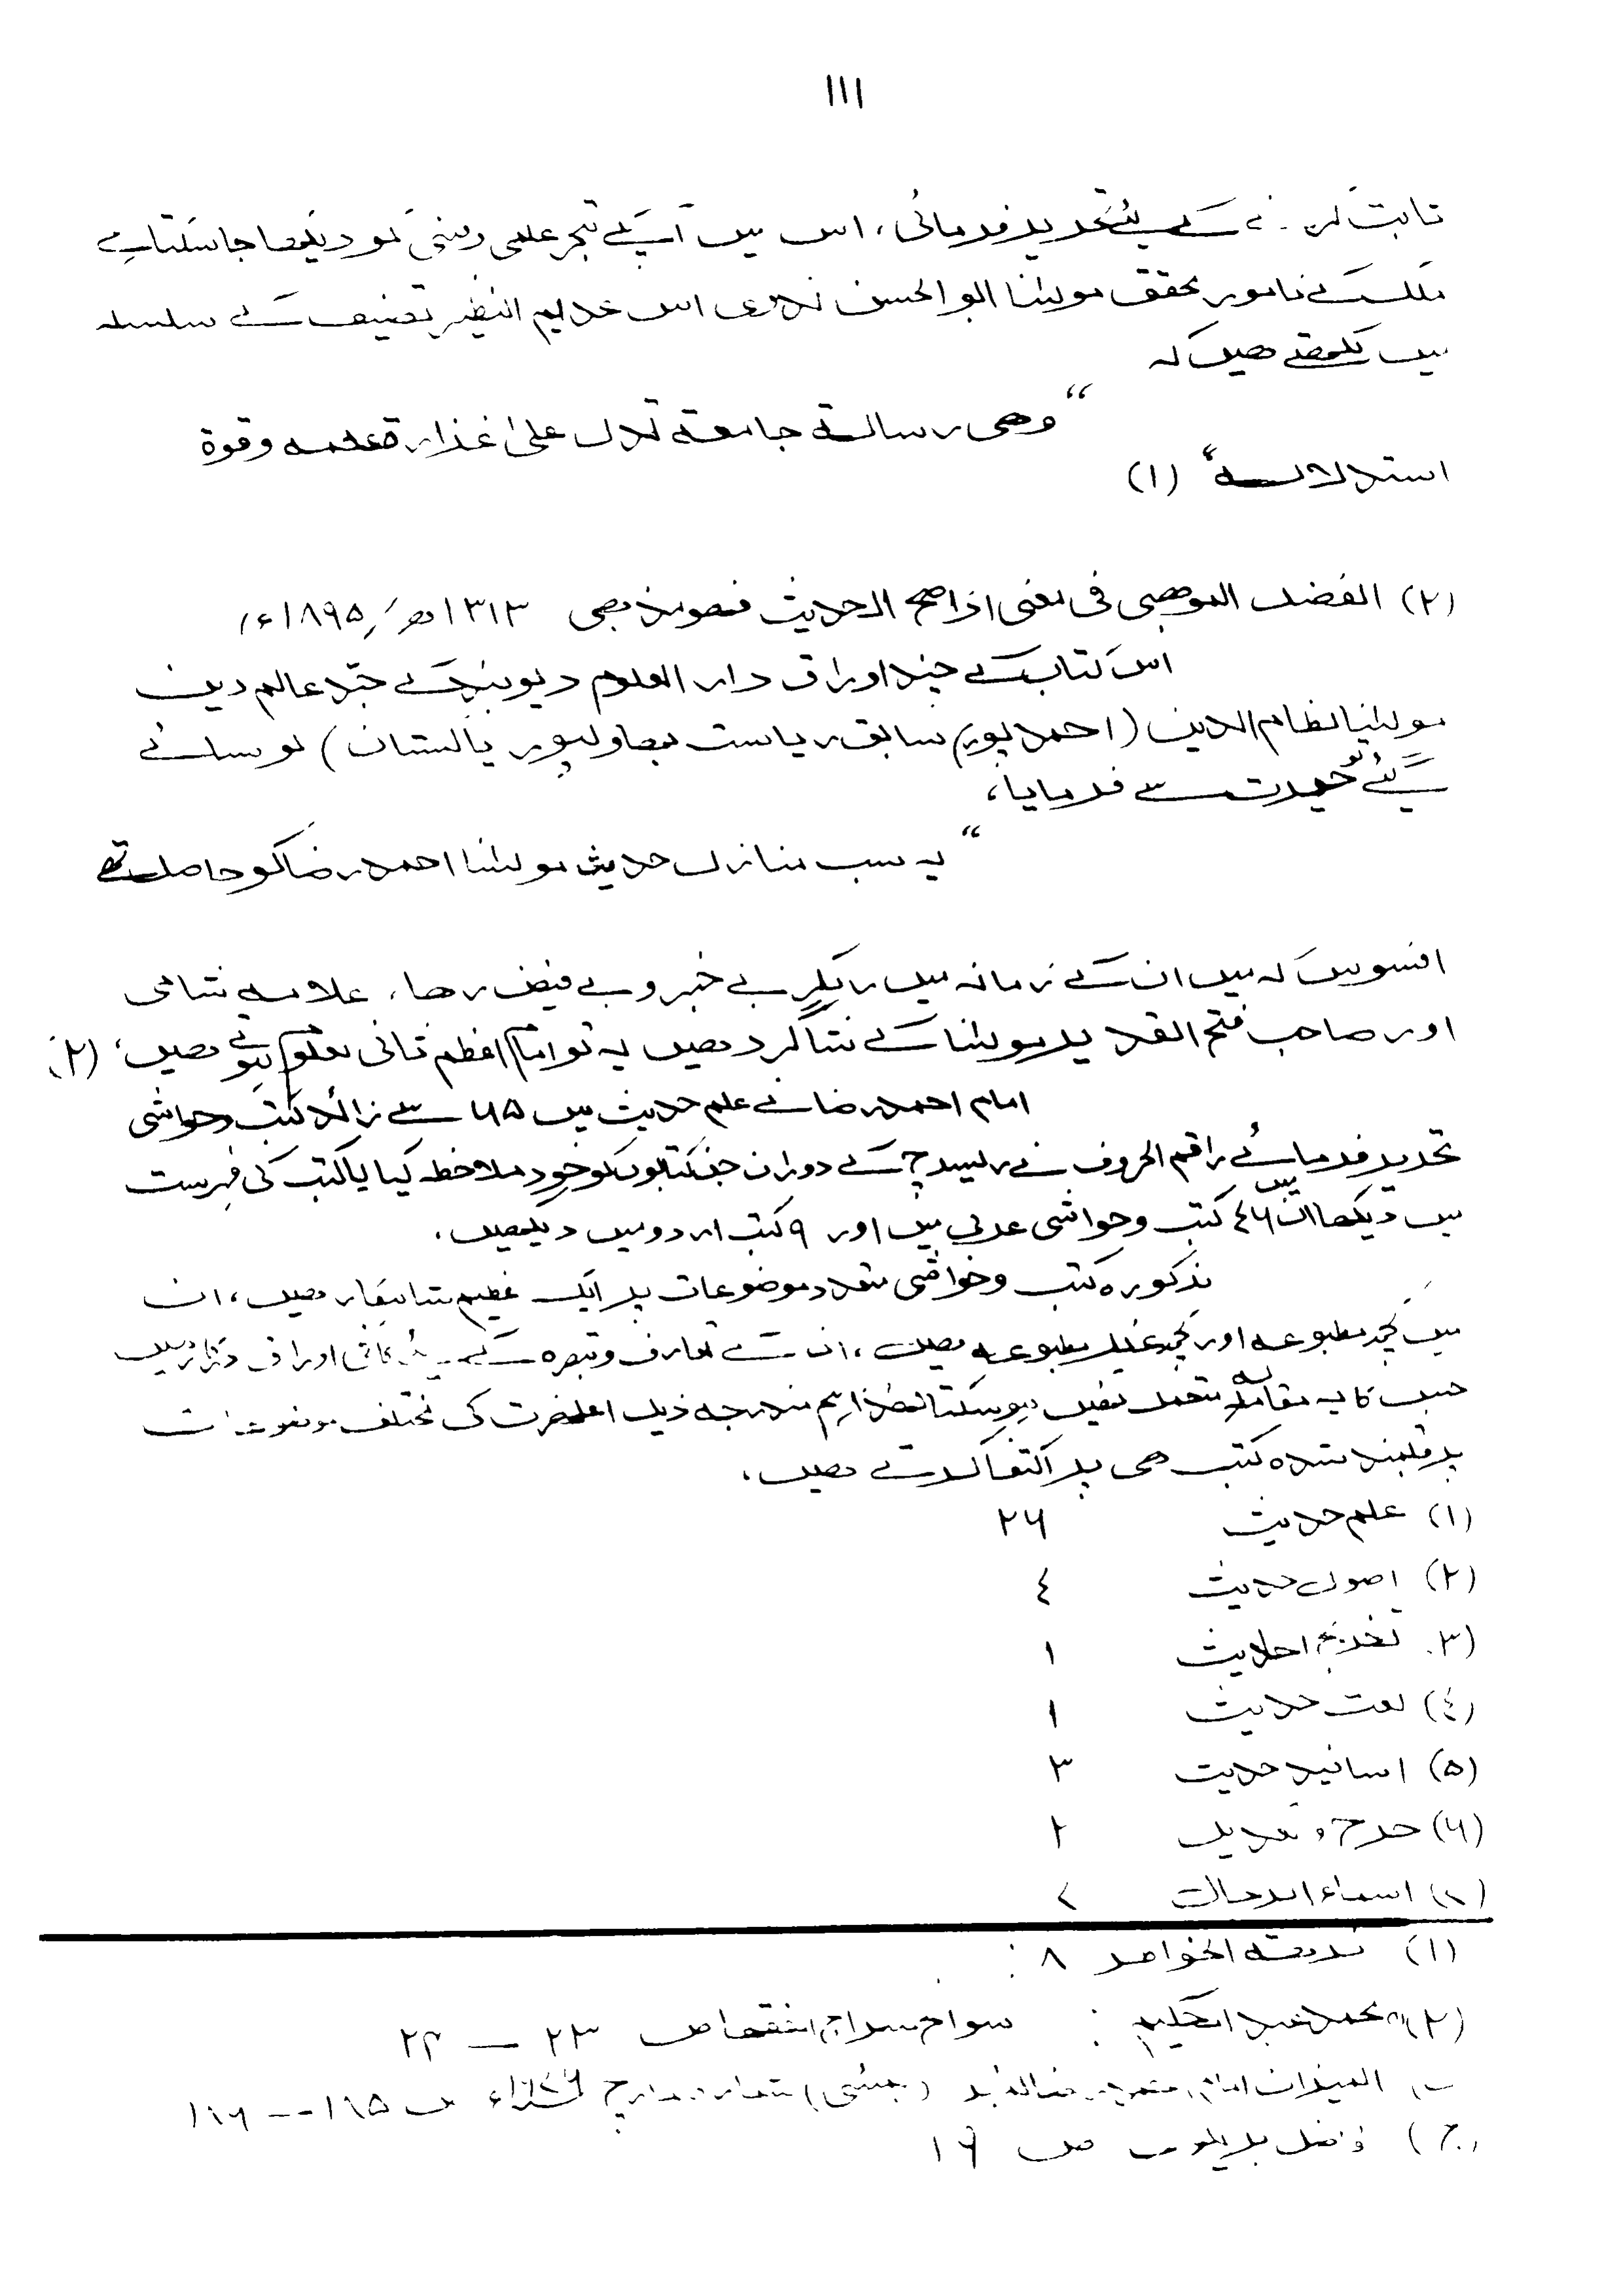 ۱۱۱
ثابت کرنے کے لیئے تحریر فرمائی، اس میں آپکے تبحر علمی و فنی کو دیکھا جاسکتا ہے
ملک کے نامور محقق مولٰنا ابوالحسن ندوی اس عدیم النظیر تصنیف کے سلسلہ
میں لکھتے ھیں کہ
“وھی رسالۃ جامعۃ تدل علیٰ غذارۃ علمہ وقوۃ
استدلالہ“ (۱)
(۲) الفضل الموھبی فی معنی اذا صح الحدیث فھو مذھبی ۱۳۱۳ھ/۱۸۹۵ء،
اس کتاب کے چند اوراق دار العلوم دیوبند کے جید عالم دین
مولٰنا نظام الدین (احمد پور سابق ریاست بھاولپور پاکستان) کو سنائے
گئے تو حیرت سے فرمایا،
“یہ سب منازل حدیث مولٰنا احمد رضا کو حاصل تھے
افسوس کہ میں ان کے زمانہ میں رہکر بے خبر و بے فیض رھا، علامہ شامی
اور صاحب فتح القدیر مولٰنا کے شاگرد ھیں یہ تو امام اعظم ثانی معلوم ہوتے ھیں، (۲)
امام احمد رضا نے علم حدیث میں ۶۵ سے زائد کتب و حواشی
تحریر فرمائے راقم الحروف نے ریسرچ کے دوران جن کتابوں کو خود ملاحظہ کیا یا کتب کی فہرست
میں دیکھا ان میں ۴۶ کتب و حواشی عربی میں اور ۹ کتب اردو میں دیکھیں،
مذکورہ کتب و حواشی متعدد موضوعات پر ایک عظیم شاہکار ھیں، ان
میں کچھ مطبوعہ اور کچھ غیر مطبوعہ ھیں، ان کے تعارف و تبصرہ کے لئے کافی اوراق درکار ھیں
جس کا یہ مقالہ متحمل نھیں ہوسکتا لھٰذا ہم مندرجہ ذیل اعلحضرت کی مختلف موضوعات
پر قلمبند شدہ کتب ھی پر اکتفا کرتے ھیں،
(۱) علم حدیث ۲۶
(۲) اصول حدیث ۴
(۳) تخریج احادیث ۱
(۴) لغت حدیث ۱
(۵) اسانید حدیث ۳
(۶) جرح و تعدیل ۲
(۷) اسماء الرجال ۷
(۱) نزھتہ الخواطر ۸ :
(۲) محمد عبد الحکیم : سوانح سراج الفقھا ص ۲۳ — ۲۴
المیزان امام احمد رضا نمبر (بمبئی) شمارہ مارچ ص ۱۱۵--۱۱۶
(ج) فاضل بریلوی ص ۱۶